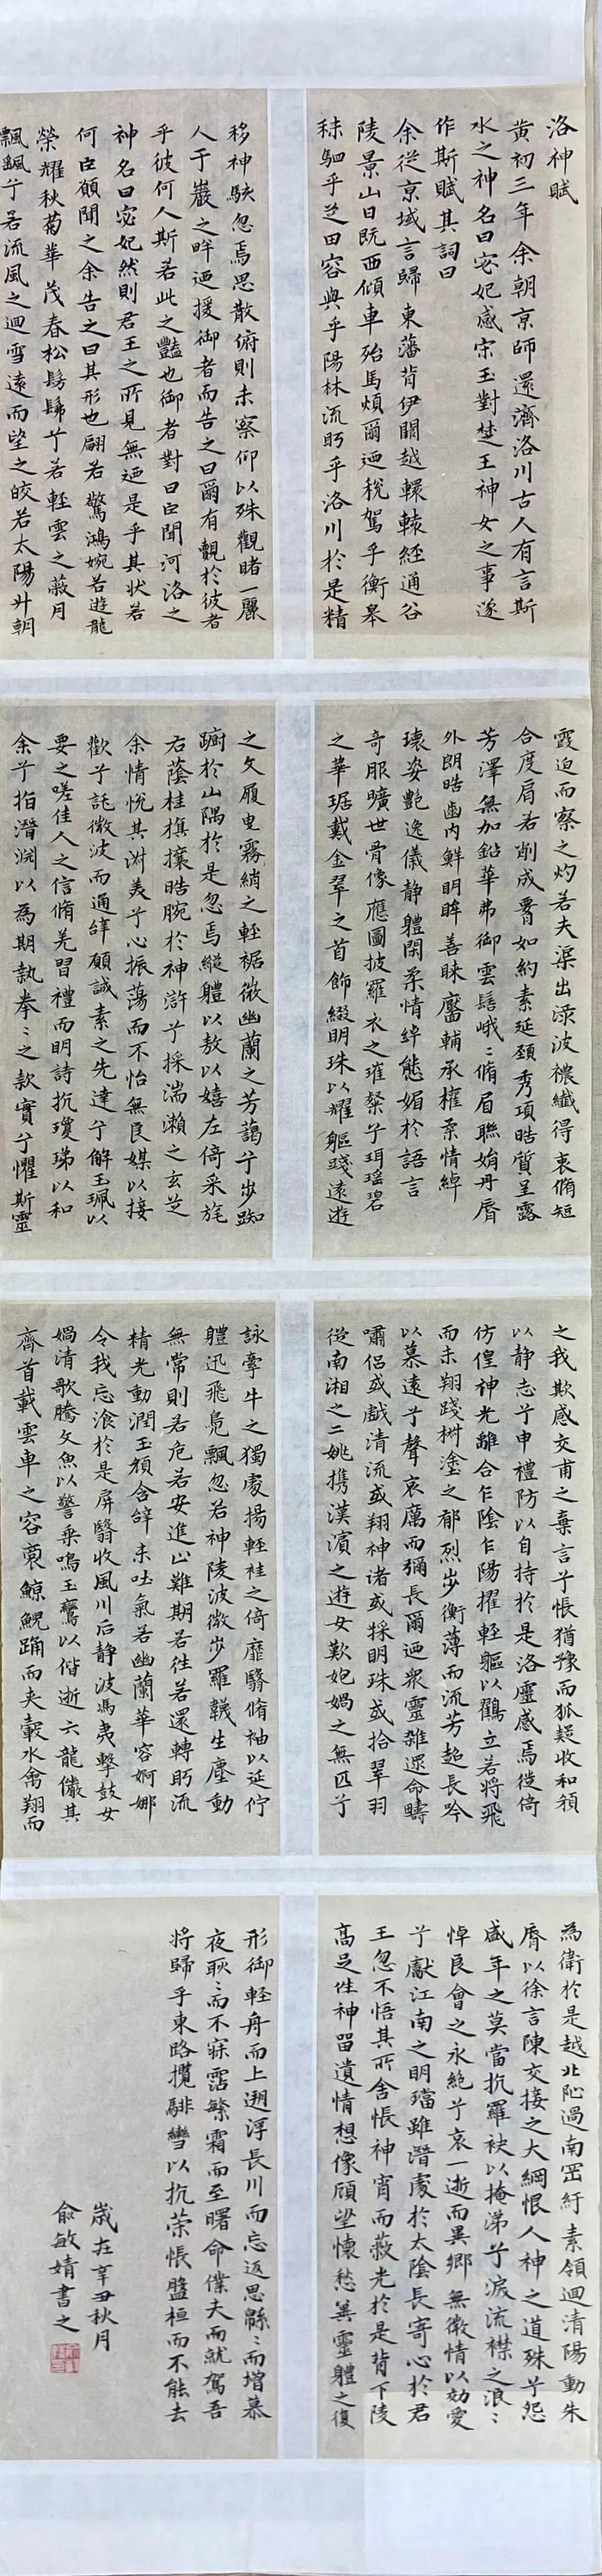 洛神賦
黄初三年余朝京師還濟洛川古人有言斯
水之神名曰宓妃感宋玉對楚王神女之事遂
作斯賦其詞曰
余從京域言歸東藩背伊闕越轘轅經通谷
陵景山日既西傾車殆馬煩爾迺稅駕乎衡皋
秣駟乎芝田容與乎陽林流眄乎洛川於是精
移神駭忽焉思散俯則未察仰以殊觀睹一麗
人于巖之畔迺援御者而告之曰爾有覿於彼者
乎彼何人斯若此之豔也御者對曰臣聞河洛之
神名曰宓妃然則君王之所見無迺是乎其狀若
何臣願聞之余告之曰其形也翩若驚鴻婉若遊龍
榮耀秋菊華茂春松髣髴兮若輕雲之蔽月
飄颻兮若流風之迴雪遠而望之皎若太陽升朝
霞迫而察之灼若夫渠出淥波穠纖得衷脩短
合度肩若削成署如約素延頸秀項皓質呈露
芳澤無加鉛華弗御雲髻峨〻脩眉聯娟丹脣
外朗皓齒内鮮明眸善睐靨輔承權柔情綽
瓌姿艷逸儀静軆閑柔情綽態媚於語言
奇服曠世骨像應圖披羅衣之璀粲兮珥瑶碧
之華琚戴金翠之首飾綴明珠以耀軀踐遠遊
之文履曳霧綃之輕裾微幽蘭之芳藹兮步踟
躕於山隅於是忽焉縱軆以敖以嬉左倚采旄
右蔭桂旗攘皓腕於神滸兮採湍瀨之玄芝
余情悅其淑美兮心振蕩而不怡無良媒以接
歡兮託微波而通辭願誠素之先達兮解玉珮以
要之嗟佳人之信脩羌習禮而明詩抗瓊珶以和
余兮指潛淵以為期執拳〻之款實兮懼斯靈
之我欺感交甫之棄言兮悵猶豫而狐疑收和顏
以静志兮申禮防以自持於是洛靈感焉徙倚
仿偟神光離合乍陰乍陽擢輕軀以鶴立若將飛
而未翔踐椒塗之郁烈步衡薄而流芳超長吟
以慕遠兮聲哀厲而彌長爾迺衆靈雜遝命疇
嘯侣或戲清流或翔神渚或採明珠或拾翠羽
從南湘之二姚攜漢濱之遊女歎匏媧之無匹兮
詠牽牛之獨處揚輕袿之倚靡翳脩袖以延佇
軆迅飛鳧飄忽若神陵波微步羅韈生塵動
無常則若危若安進止難期若往若還轉眄流
精光動潤玉顏含辭未吐氣若幽蘭華容婀娜
令我忘飡於是屏翳收風川后静波馮夷擊鼓女
媧清歌騰文魚以警乘鳴玉鸞以偕逝六龍儼其
齊首載雲車之容裔鯨鯢踊而夾轂水禽翔而
為衛於是越北沚過南岡紆素領迴清陽動朱
脣以徐言陳交接之大綱恨人神之道殊兮怨
盛年之莫當抗羅袂以掩涕兮淚流襟之浪〻
悼良會之永絶兮哀一逝而異鄉無微情以効愛
兮獻江南之明璫雖潛處於太陰長寄心於君
王忽不悟其所舍悵神宵而蔽光於是背下陵
高足往神留遺情想像顧望懷愁冀靈軆之復
形御輕舟而上遡浮長川而忘返思緜〻而增慕
夜耿〻而不寐霑繁霜而至曙命僕夫而就駕吾
將歸乎東路攬騑轡以抗策悵盤桓而不能去
歲在辛丑秋月
俞敏婧書之